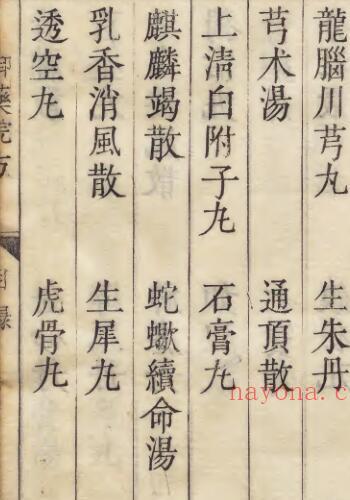 龍腦川芎丸 生朱丹
芎术湯 通頂散
上清白附子丸 石膏丸
麒麟竭散 蛇蠍續命湯
乳香消風散 生犀丸
透空丸 虎骨丸
御藥院方 目錄
nayona.c